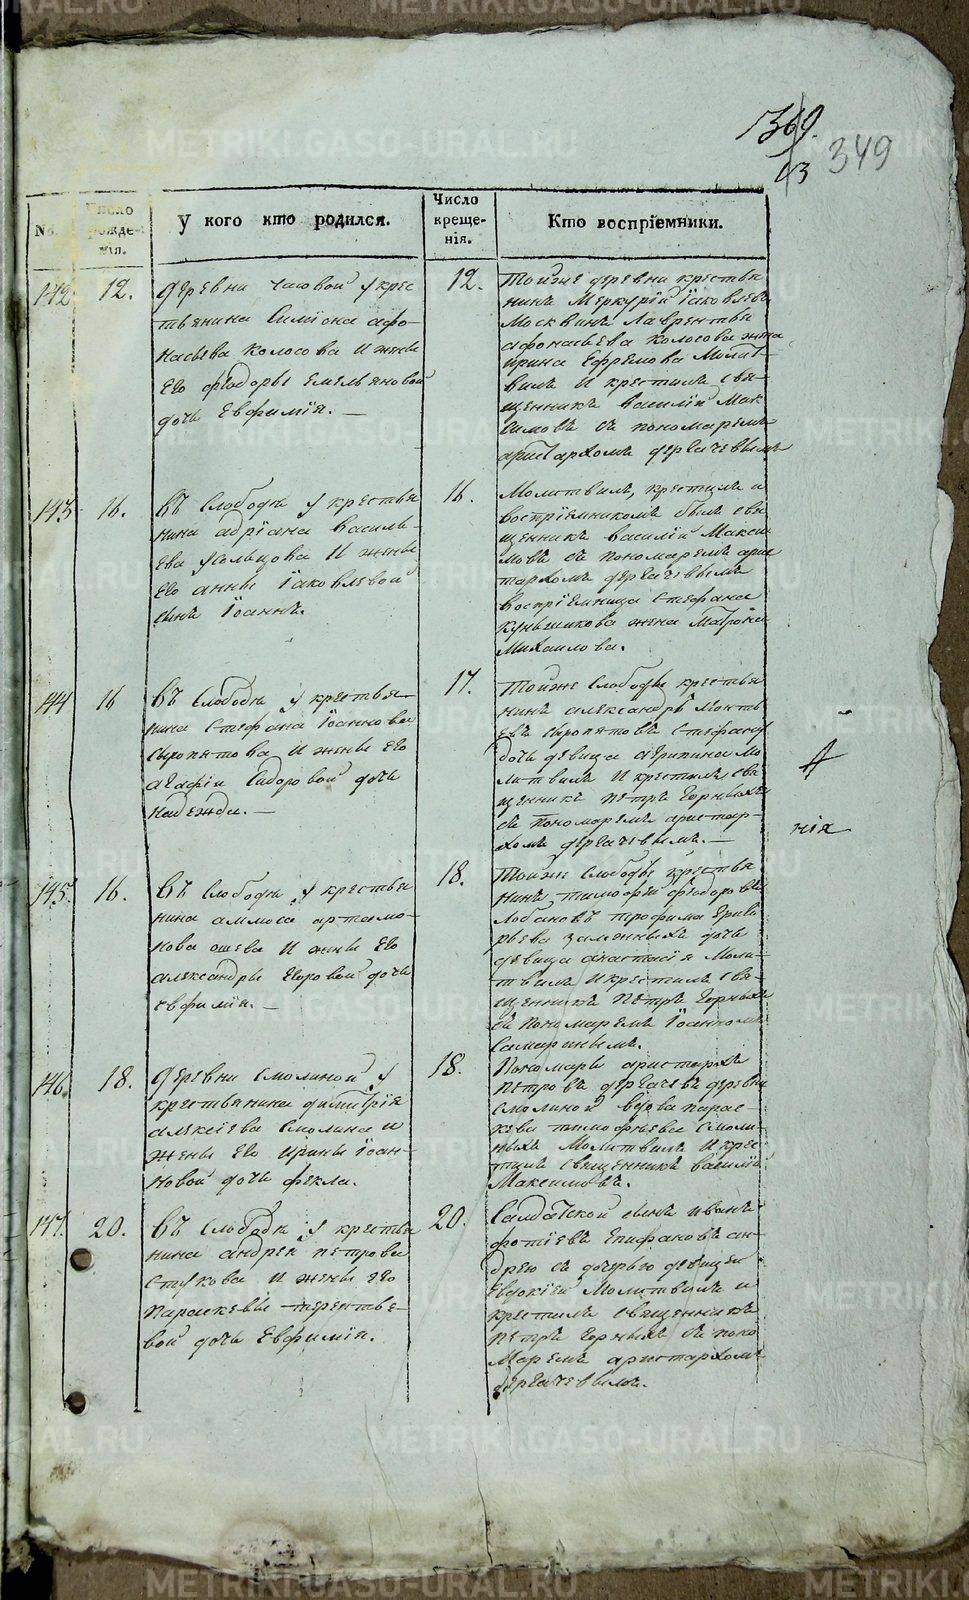 1369.
13
349
№.
Число рожде-
нія.
У кого кто родился.
Число
креще-
нія.
Кто воспріемники.
142
12.
деревни часовой у крес
тьянина Симіона афо-
насьева колосова и жены
его федоры емельяновой
дочь евфимія. —
12.
тойже деревни крестья
нинъ Меркурій Іаковлевъ
Москвинъ Лаврентья
афонасьева колосова жена
ирина ефремова Молит-
вилъ и крестилъ свя-
щенникъ василій Мак-
симовъ съ пономаремъ
аристархомъ дергачевымъ
143
16.
въ Слободѣ у крестья
нина адріана василь-
ева и жены
его анны Іаковлевой
сынъ Іоаннъ.
16.
Молитвилъ, крестилъ и
воспріемникомъ былъ свя
щенникъ василій Макси
мовъ съ пономаремъ арис
тархомъ дергачевымъ
воспріемница стефана
жена Матрона
Михаилова.
144
16
въ Слободѣ у крестья-
нина Стефана Іоаннова
сыропятова и жены его
агафіи Сидоровой дочь
надежда. —
17.
тойже слободы крестья
нинъ александръ
сыропятовъ стефана
дочь девица агрипина мо
литвилъ и крестилъ свя
щенникъ петръ Горныхъ
съ пономаремъ аристар-
хомъ дергачевымъ. —
нія
145.
16.
въ Слободѣ у крестья
нина аммоса артамо-
нова ошева и жены его
александры егоровой дочь
евфимія. —
18.
тойже слободы крестья
нинъ тимофей федоровъ
Лобановъ трофима григо
рьева дочь
девица анастасія Моли-
твилъ и крестилъ свя-
щенникъ петръ Горныхъ
съ пономаремъ Іоанномъ
Самаринымъ.
146.
18.
деревни смолиной у
крестьянина димитрія
алексіева Смолина и
жены его ирины Іоан-
новой дочь фекла.
18.
Пономарь аристархъ
петровъ дергачевъ деревни
смолиной вдова парас-
кева тимофѣева смоли-
ныхъ Молитвилъ и крес-
тилъ священникъ василій
Максимовъ.
147.
20.
въ Слободѣ у крестья
нина андрея петрова
стукова и жены его
параскевы терентье-
вой дочь Евфимія.
20.
Салдатской сынъ иванъ
фотіевъ епифановъ ан-
дрею съ дочерью девицей
евдокіей Молитвилъ и
крестилъ священникъ
петръ Горныхъ съ поно
маремъ аристархомъ
дергачевымъ.
METRIKI.GASO-URAL.RU